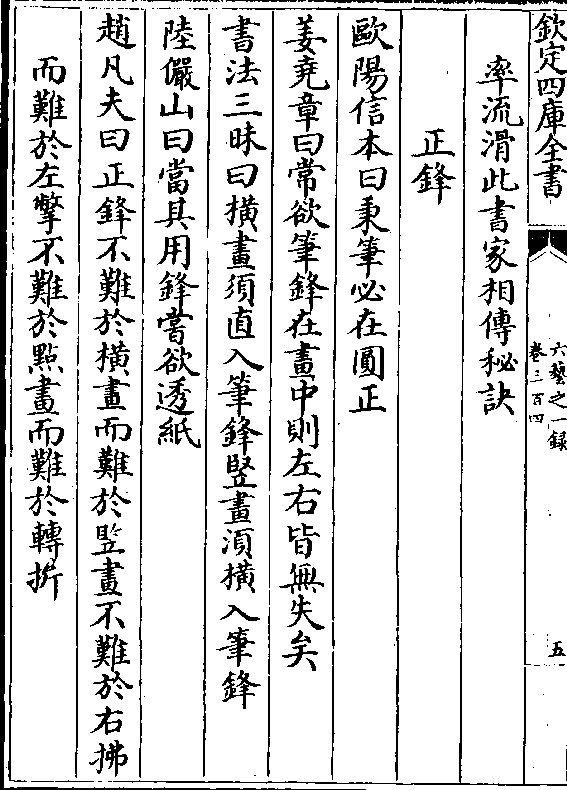 欽定四庫全書
六藝之一録
卷三百四
五
率流滑此書家相傳秘訣
正鋒
歐陽信本曰秉筆必在圓正
姜堯章曰常欲筆鋒在畫中則左右皆無失矣
書法三昧曰横畫須直入筆鋒竪畫須横入筆鋒
陸儼山曰當其用鋒嘗欲透紙
趙凡夫曰正鋒不難於横畫而難於竪畫不難於右拂
而難於左撆不難於點畫而難於轉折